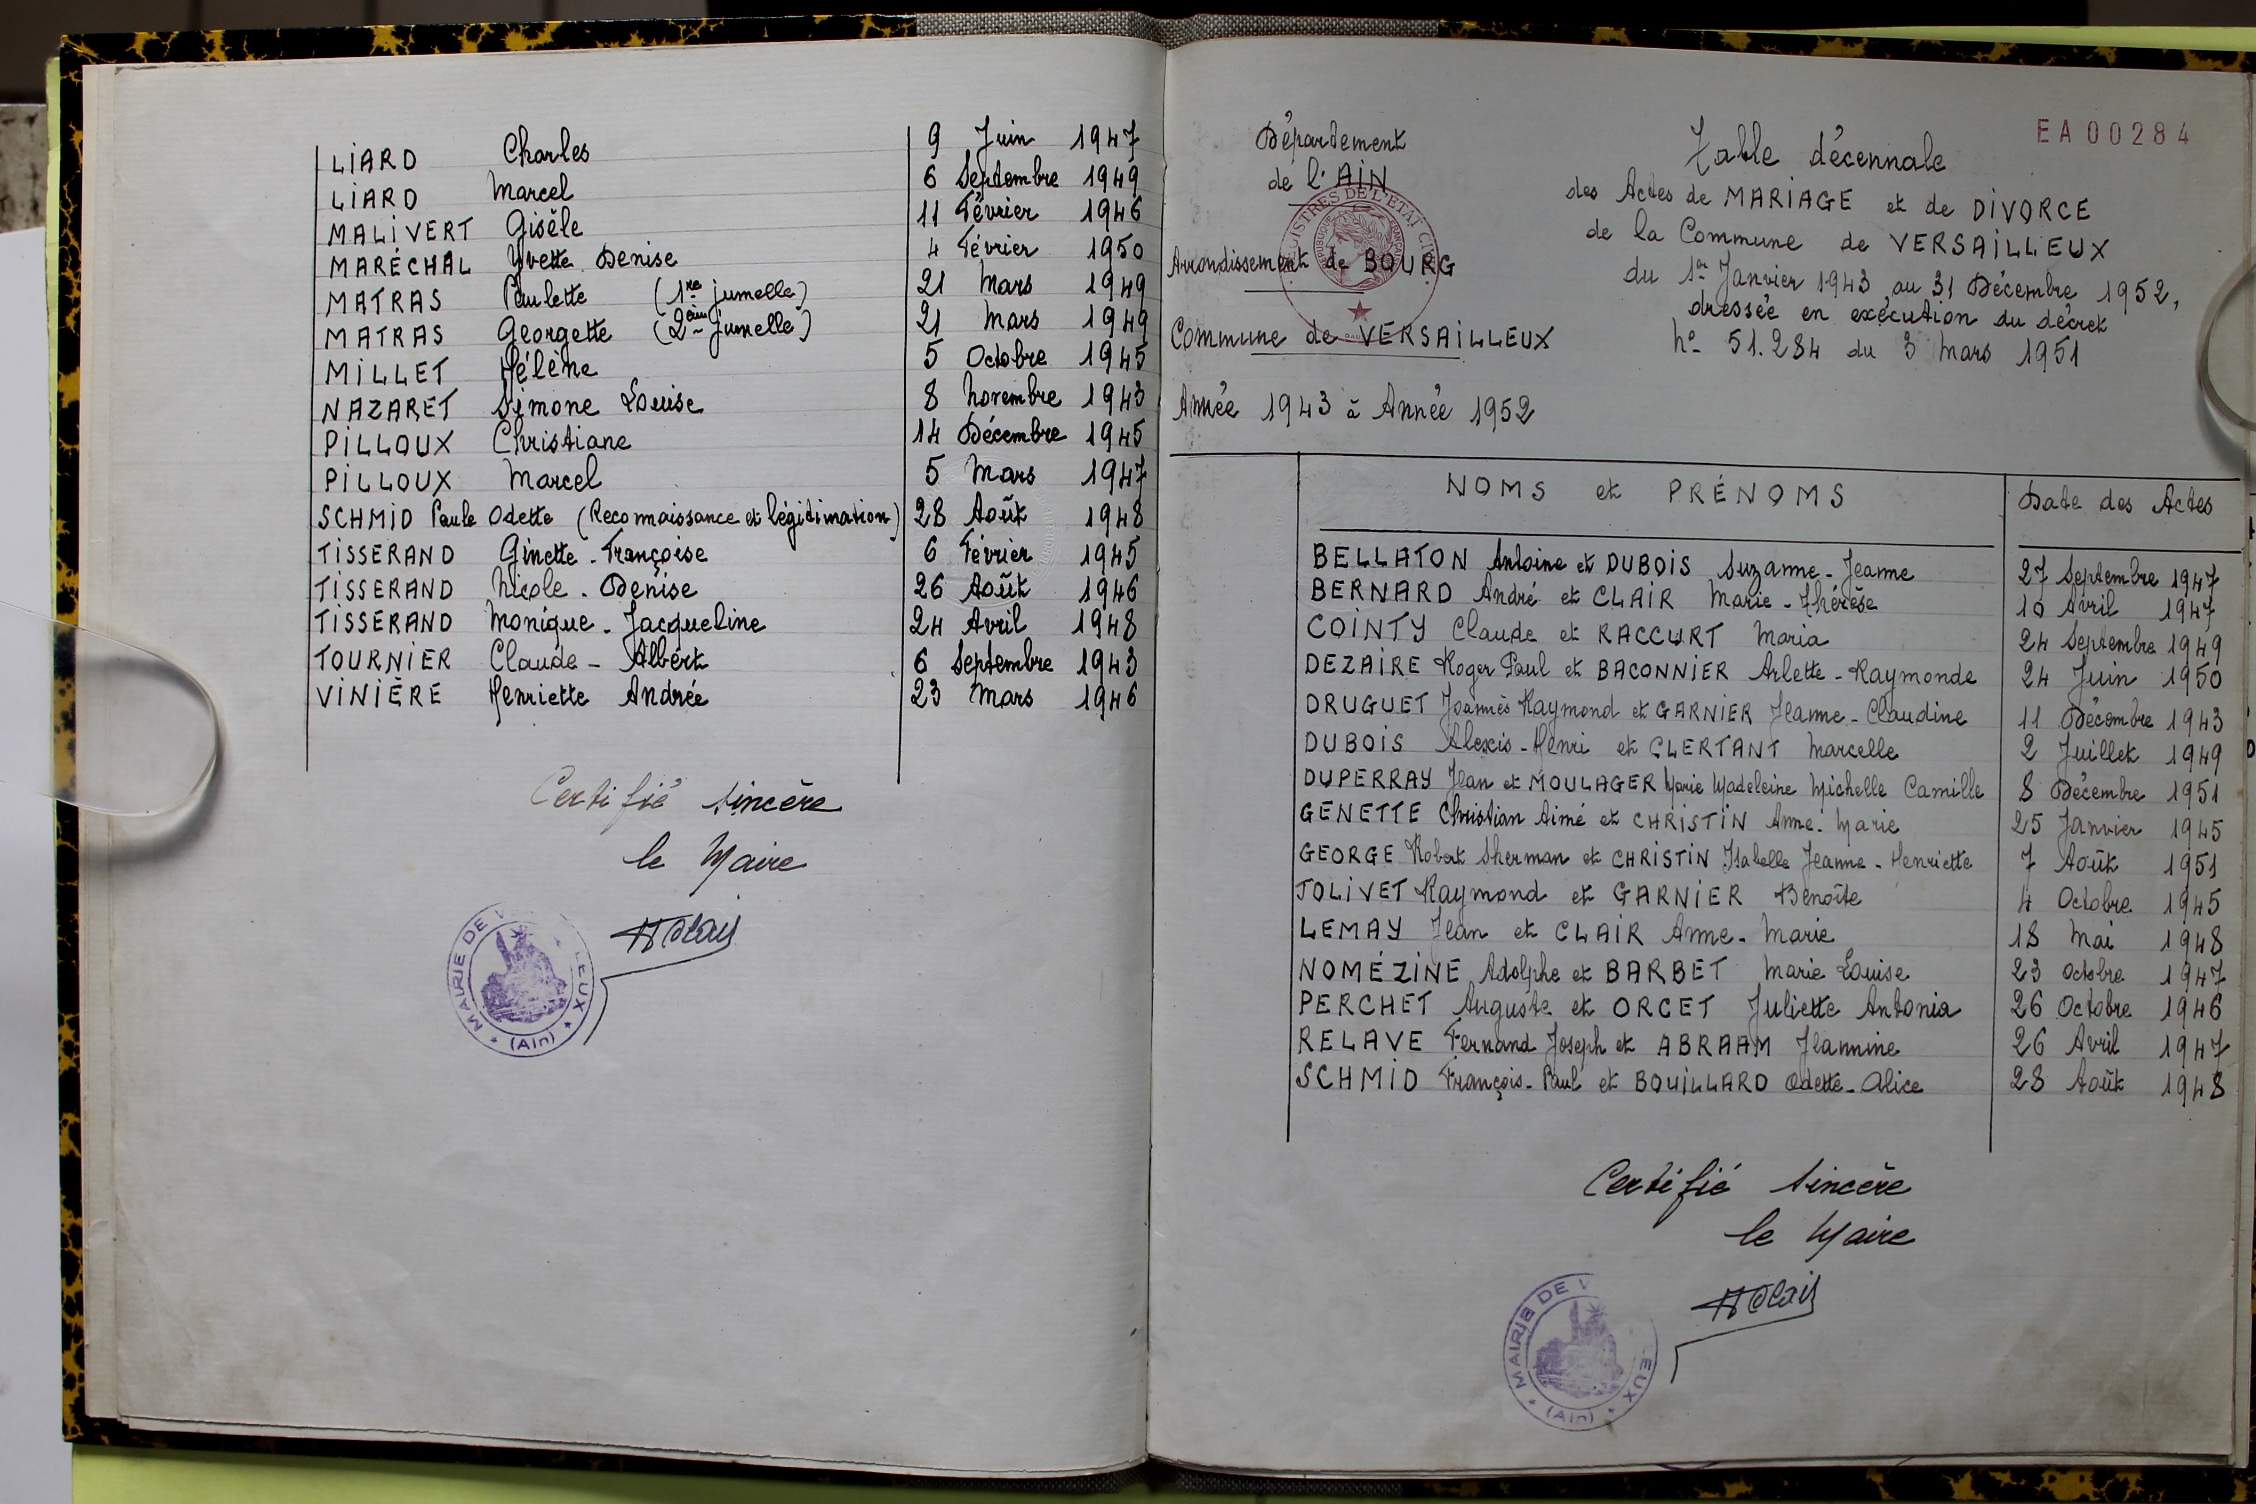 LIARD Charles 9 Juin 1947
LIARD Marcel 6 Septembre 1949
MALIVERT Gisèle 11 Février 1946
MARÉCHAL Yvette Denise 4 Février 1950
MATRAS Paulette (1re jumelle) 21 Mars 1949
MATRAS Georgette (2ème jumelle) 21 Mars 1949
MILLET Hélène 5 Octobre 1945
NAZARET Simone Louise 8 Novembre 1943
PILLOUX Christiane 14 Décembre 1945
PILLOUX Marcel 5 Mars 1947
SCHMID Paule Odette (Reconnaissance et légitimation) 28 Août 1948
TISSERAND Ginette - Françoise 6 Février 1945
TISSERAND Nicole - Denise 26 Août 1946
TISSERAND Monique - Jacqueline 24 Avril 1948
TOURNIER Claude - Albert 6 Septembre 1943
VINIÈRE Henriette Andrée 23 Mars 1946
Certifié sincère
le Maire
MAIRIE DE V LEUX
(Ain)
EA00284
Département
de l'AIN
REGISTRES DE L'ETAT CIVIL
REPUBLIQUE FRANÇAISE
Arrondissement de BOURG
Commune de VERSAILLEUX
Année 1943 à Année 1952
Table décennale
des Actes de MARIAGE et de DIVORCE
de la Commune de VERSAILLEUX
du 1er Janvier 1943 au 31 Décembre 1952,
dressée en exécution du décret
no 51.284 du 3 Mars 1951
NOMS et PRÉNOMS Date des Actes
BELLATON Antoine et DUBOIS Suzanne - Jeanne 27 Septembre 1947
BERNARD André et CLAIR Marie - Thérèse 10 Avril 1947
COINTY Claude et RACCURT Maria 24 Septembre 1949
DEZAIRE Roger Paul et BACONNIER Arlette - Raymonde 24 Juin 1950
DRUGUET Joannès Raymond et GARNIER Jeanne - Claudine 11 Décembre 1943
DUBOIS Alexis - Henri et CLERTANT Marcelle 2 Juillet 1949
DUPERRAY Jean et MOULAGER Marie Madeleine Michelle Camille 8 Décembre 1951
GENETTE Christian Aimé et CHRISTIN Anne - Marie 25 Janvier 1945
GEORGE Robert Sherman et CHRISTIN Isabelle Jeanne - Henriette 7 Août 1951
JOLIVET Raymond et GARNIER Benoîte 4 Octobre 1945
LEMAY Jean et CLAIR Anne - Marie 18 Mai 1948
NOMÉZINE Adolphe et BARBET Marie Louise 23 Octobre 1947
PERCHET Auguste et ORCET Juliette Antonia 26 Octobre 1946
RELAVE Fernand Joseph et ABRAAM Jeannine 26 Avril 1947
SCHMID François - Paul et BOUILLARD Odette - Alice 28 Août 1948
Certifié sincère
le Maire
MAIRIE DE V LEUX
(Ain)